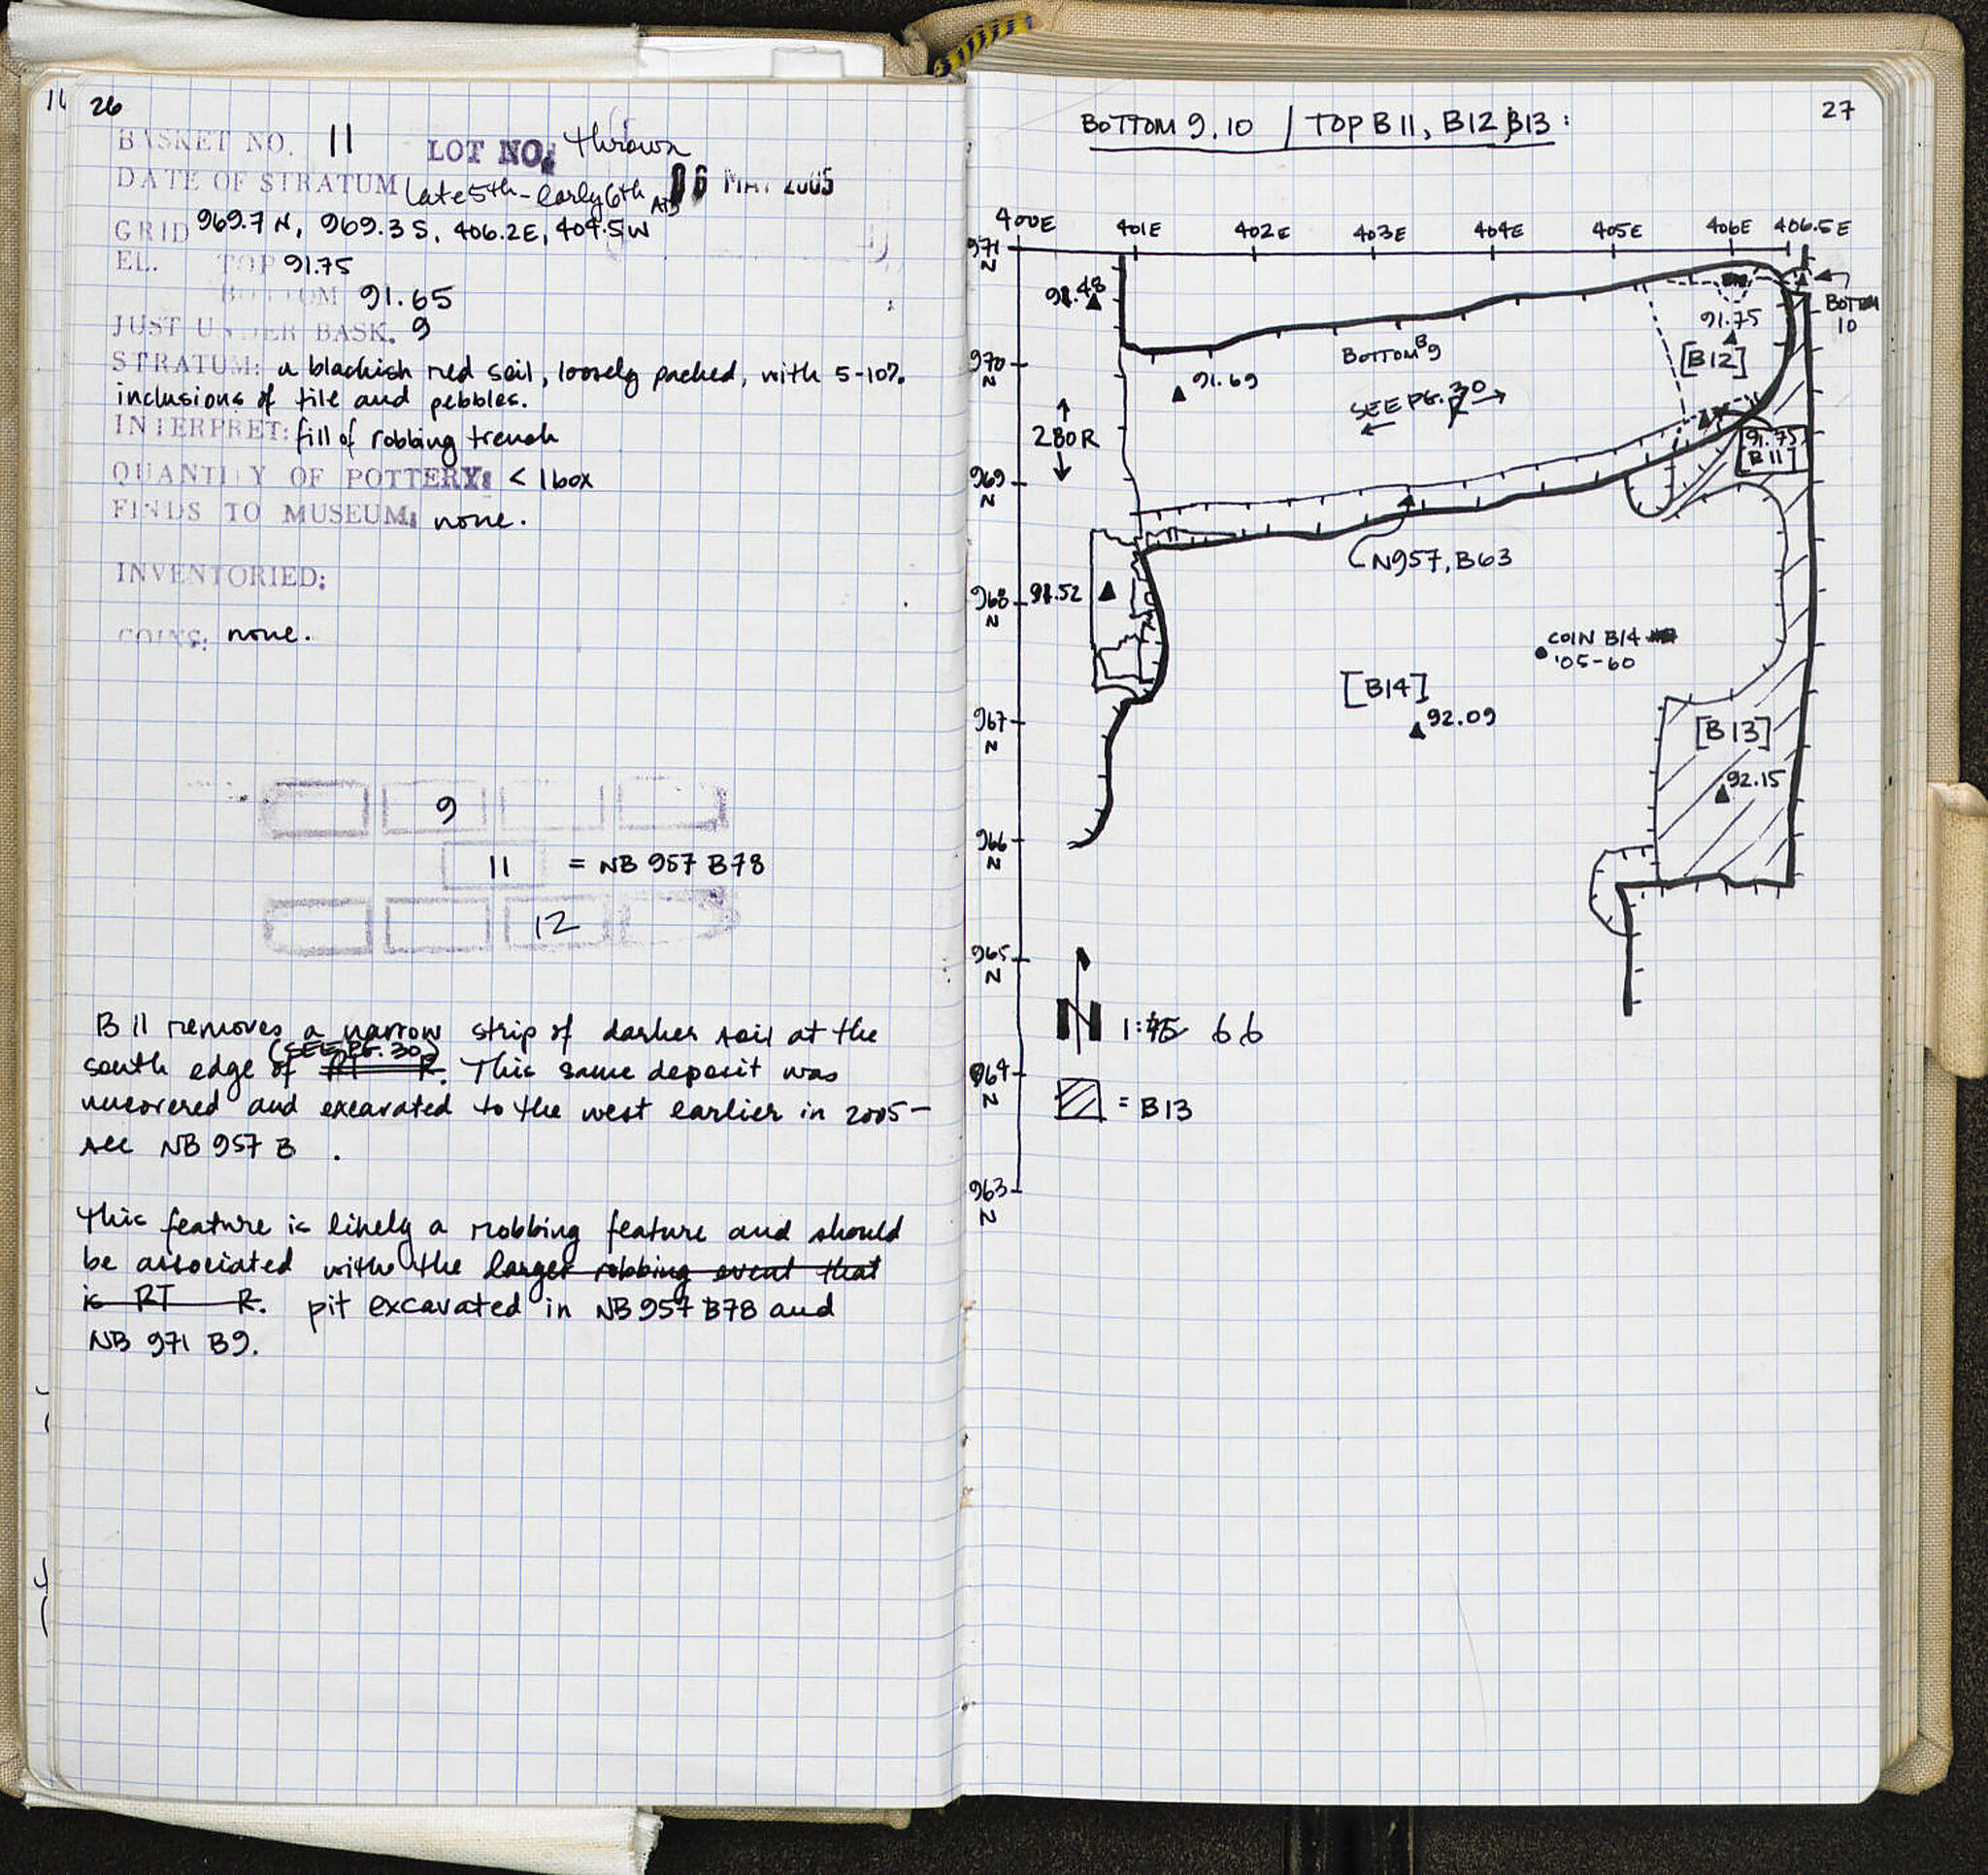 26
BASKET NO. 11 LOT NO. thrown
DATE OF STRATUM late 5th - early 6th AD 06 MAY 2005
GRID 969.7 N, 969.3 S, 406.2 E, 404.5 W
EL. TOP 91.75
BOTTOM 91.65
JUST UNDER BASK. 9
STRATUM: a blackish red soil, loosely packed, with 5-10%
inclusions of tile and pebbles.
INTERPRET: fill of robbing trench
QUANTITY OF POTTERY: < 1 box
FINDS TO MUSEUM: none.
INVENTORIED:
COINS: none.
9
11 = NB 957 B78
12
B 11 removes a narrow strip of darker soil at the
(SEE PG. 30)
south edge of RT R. This same deposit was
uncovered and excavated to the west earlier in 2005 -
see NB 957 B .
This feature is likely a robbing feature and should
be associated with the larger robbing event that
is RT R. pit excavated in NB 957 B78 and
NB 971 B9.
27
BOTTOM 9, 10 / TOP B11, B12 B13 :
400E 401E 402E 403E 404E 405E 406E 406.5E
971 N
.48
BOTTOM 10
91.75
[B12]
BOTTOM B9
970 N
91.69
SEE PG. 30
280 R
91.75
[B11]
969 N
N957, B63
968 N
.52
COIN B14
'05-60
[B14]
92.09
967 N
[B13]
92.15
966 N
965 N
N 1: 66
964 N
= B13
963 N